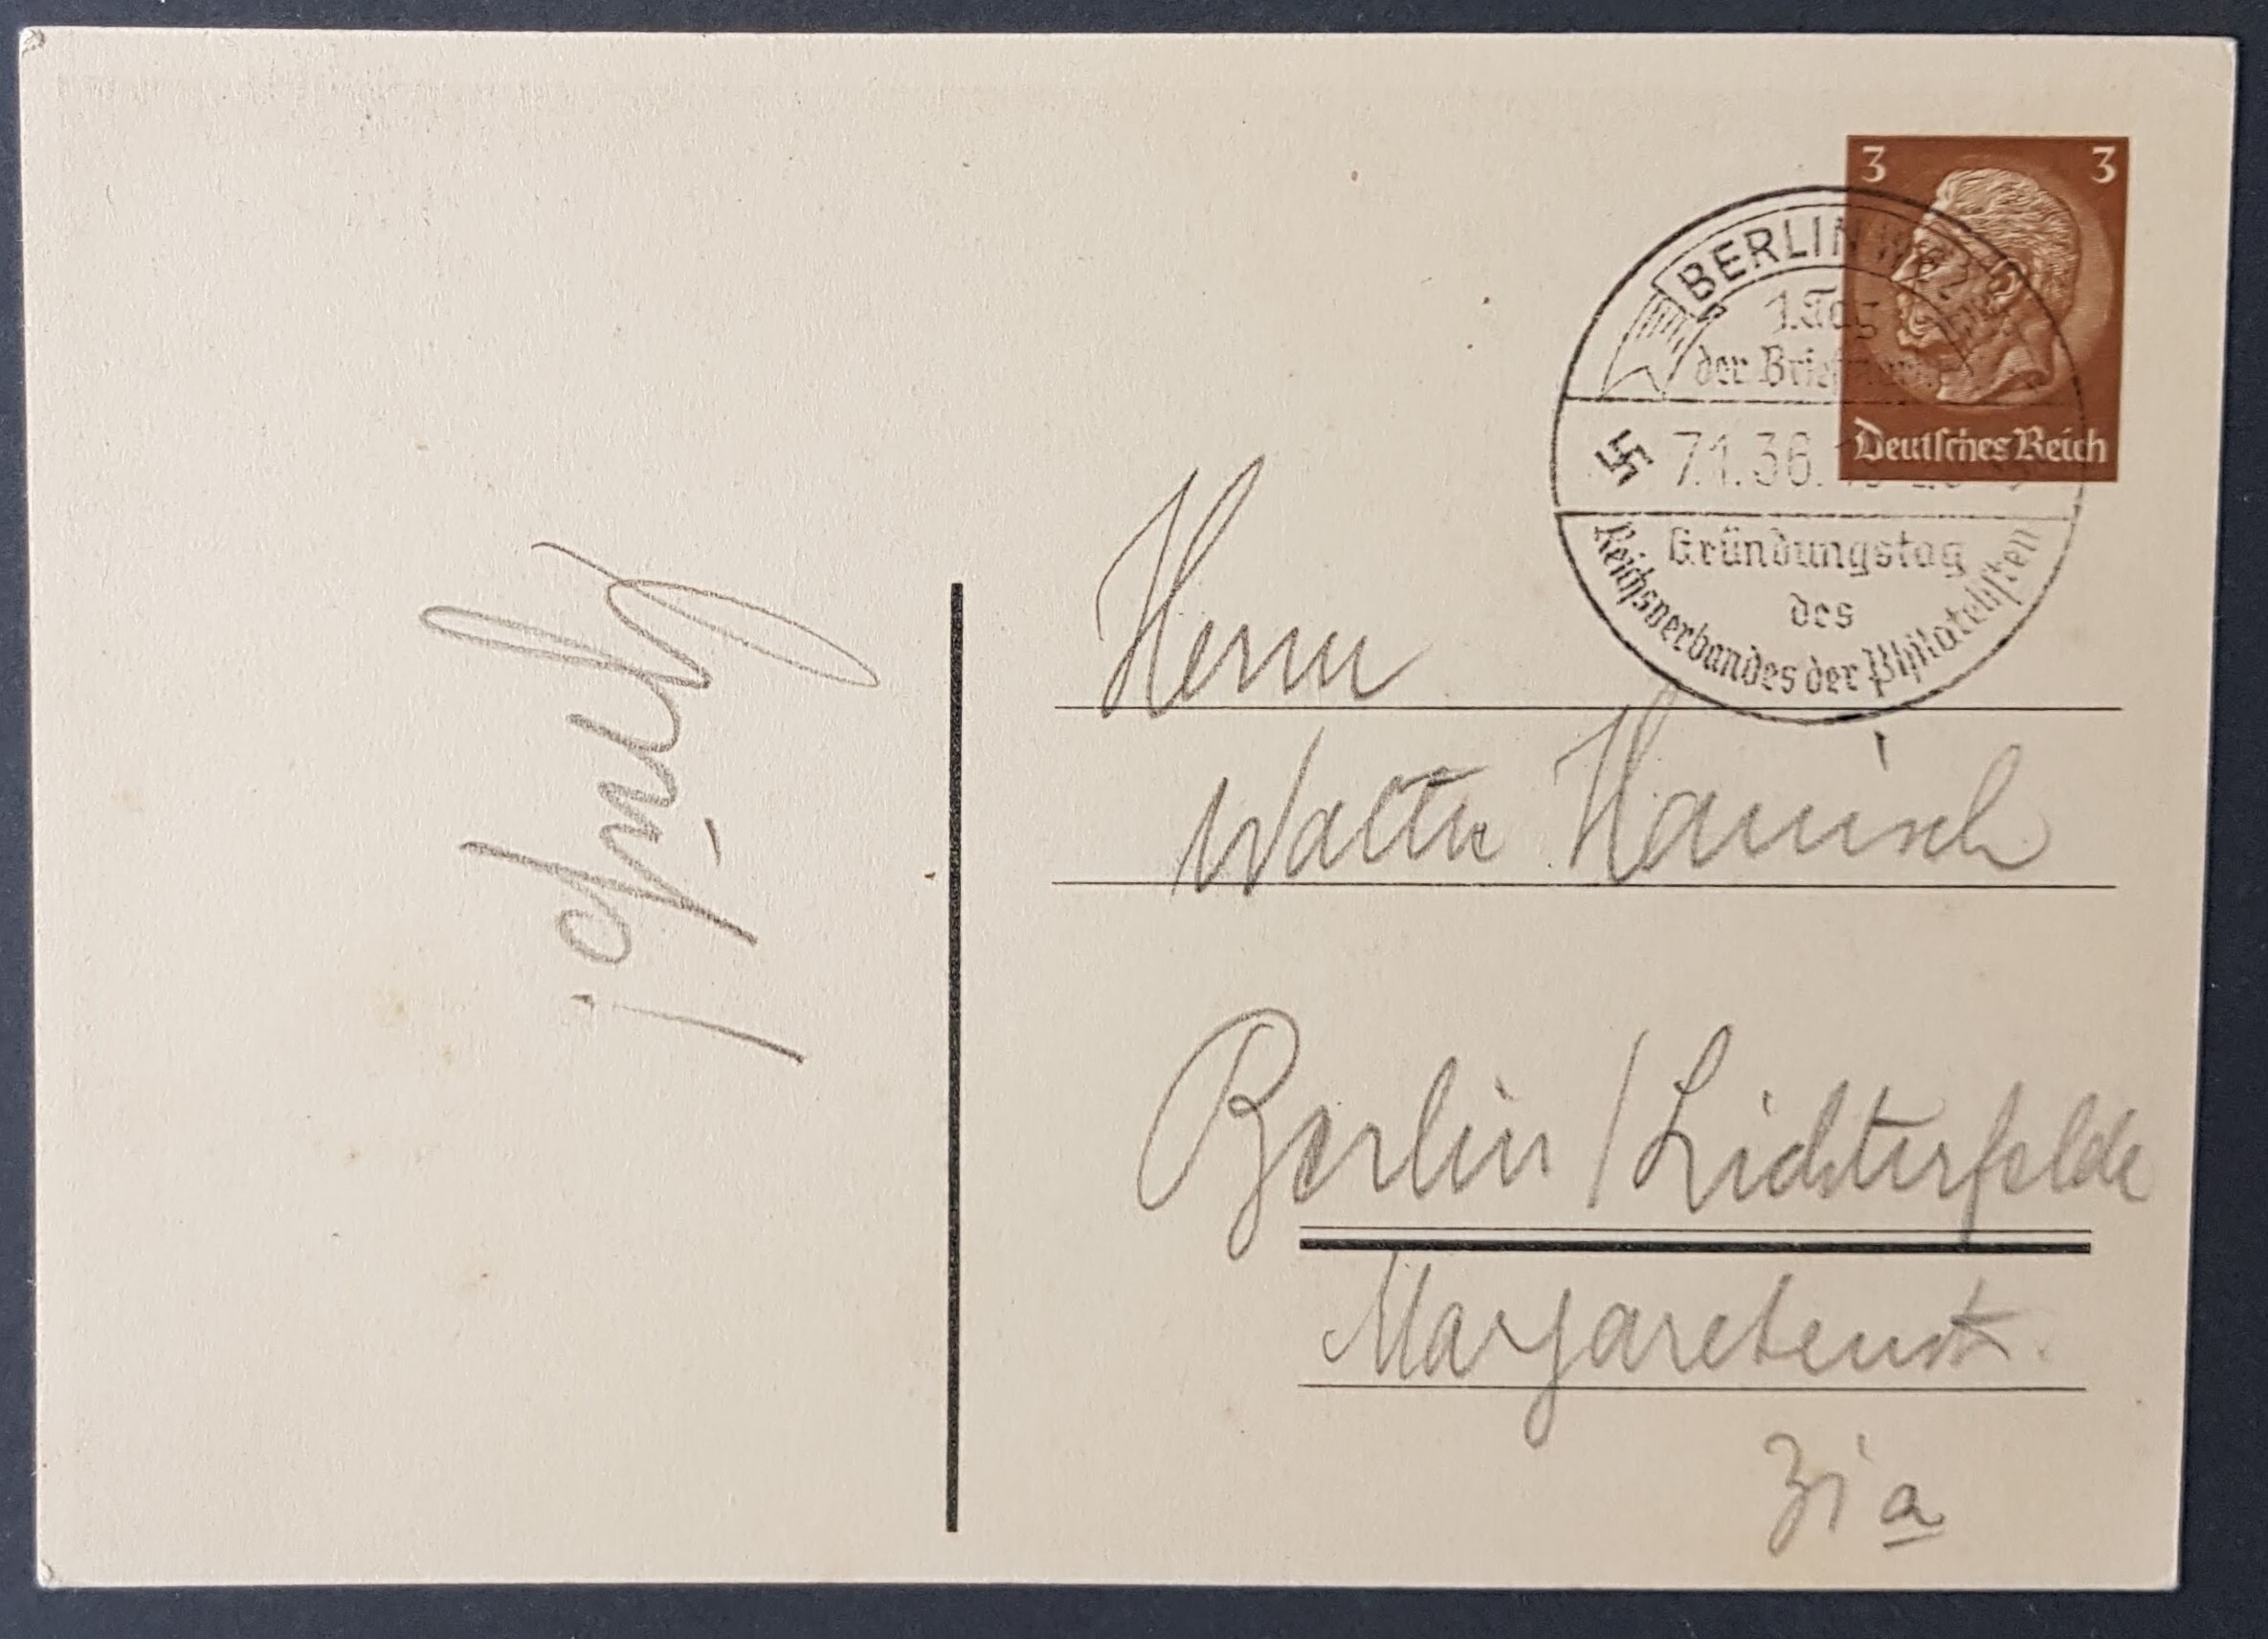 3 3
Deutsches Reich
BERLIN W
1. Tag
der Briefmarke
7.1.36.
Gründungstag
des
Reichsverbandes der Philatelisten
Herrn
Walter Hanisch
Berlin / Lichterfelde
Margaretenstr.
31 a